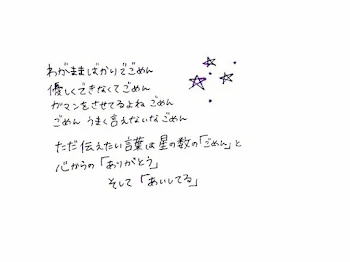 わがままばかりでごめん
優しくできなくてごめん
ガマンをさせてるよね ごめん
ごめん うまく言えないな ごめん
ただ伝えたい言葉は星の数の「ごめん」と
心からの「ありがとう」
そして「あいしてる」